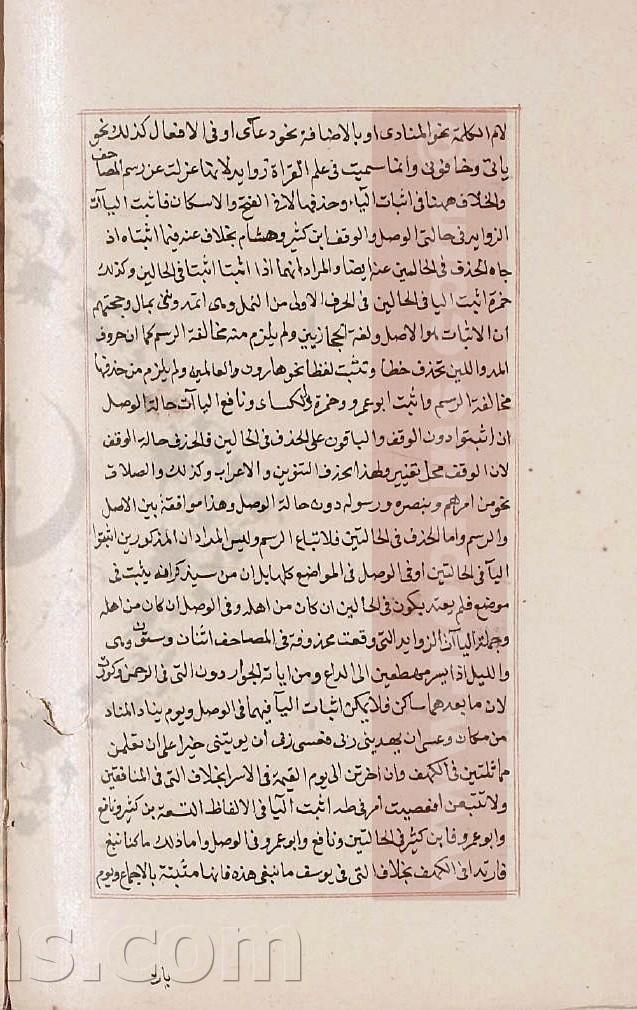 لام الكلمة نحو المنادى او بالاضافة نحو دعآى او فى الافعال كذلك نحو
ياتى وخافونى وانما سميت فى علم القرآة زوايد لانها عزلت عن رسم المصاحف
والخلاف ههنا فى اثبات اليآء وحذفها لا فى الفتح والاسكان فاثبت اليآات
الزوايد فى حالتى الوصل والوقف ابن كثير وهشام بخلاف عنه فيها اثباتا اذ
جاء الحذف فى الحالين عنه ايضا والمراد انهما اذا اثبتا اثبتا فى الحالين وكذلك
حمزة اثبت اليا فى الحالين فى الحرف الاولى من النمل وهى اتمدونن بمال وحجتهم
ان الاثبات هو الاصل ولغة الحجازيين ولم يلزم منه مخالفة الرسم كما ان حروف
المد واللين تحذف خطا وتثبت لفظا نحو هارون والعالمين ولم يلزم من حذفها
مخالفة الرسم واثبت ابو عمرو وحمزة والكساءى ونافع اليآات حالة الوصل
ان اثبتوا دون الوقف والباقون على الحذف فى الحالين فالحذف حالة الوقف
لان الوقف محل تغيير ولهذا يحذف التنوين والاعراب وكذلك والصلات
نحو من امرهم وينصره ورسوله دون حالة الوصل وهذا موافقة بين الاصل
والرسم واما الحذف فى الحالتين فلاتباع الرسم وليس المراد ان المذكورين اثبتوا
اليآ فى الحالتين او فى الوصل فى المواضع كلها بل ان من سيذكر انه يثبت فى
موضع فلم يعتد يكون فى الحالين ان كان من اهله وفى الوصل ان كان من اهله
وجملة اليآات الزوايد التى وقعت محذوفة فى المصاحف اثنان وستون وهى
والليل اذا يسر مهطعين الى الداع ومن اياته الجوار دون التى فى الرحمن وكورت
لان ما بعدهما ساكن فلا يمكن اثبات اليآ فيهما فى الوصل ويوم يناد المناد
من مكان وعسى ان يهدينى ربى فعسى ربى ان يوتينى خيرا على ان تعلمن
مما علمت فى الكهف وان اخرتن الى يوم القيمة فى الاسرا بخلاف التى فى المنافقين
ولا تتبعن افعصيت امرى فى طه اثبت اليآ فى الالفاظ التسعة بن كثير ونافع
وابو عمرو فابن كثير فى الحالتين ونافع وابو عمرو فى الوصل واما ذلك ما كنا نبغ
فارتدا فى الكهف بخلاف التى فى يوسف ما نبغى هذه فانها مثبتة بالاجماع ويوم
يات
ns.com